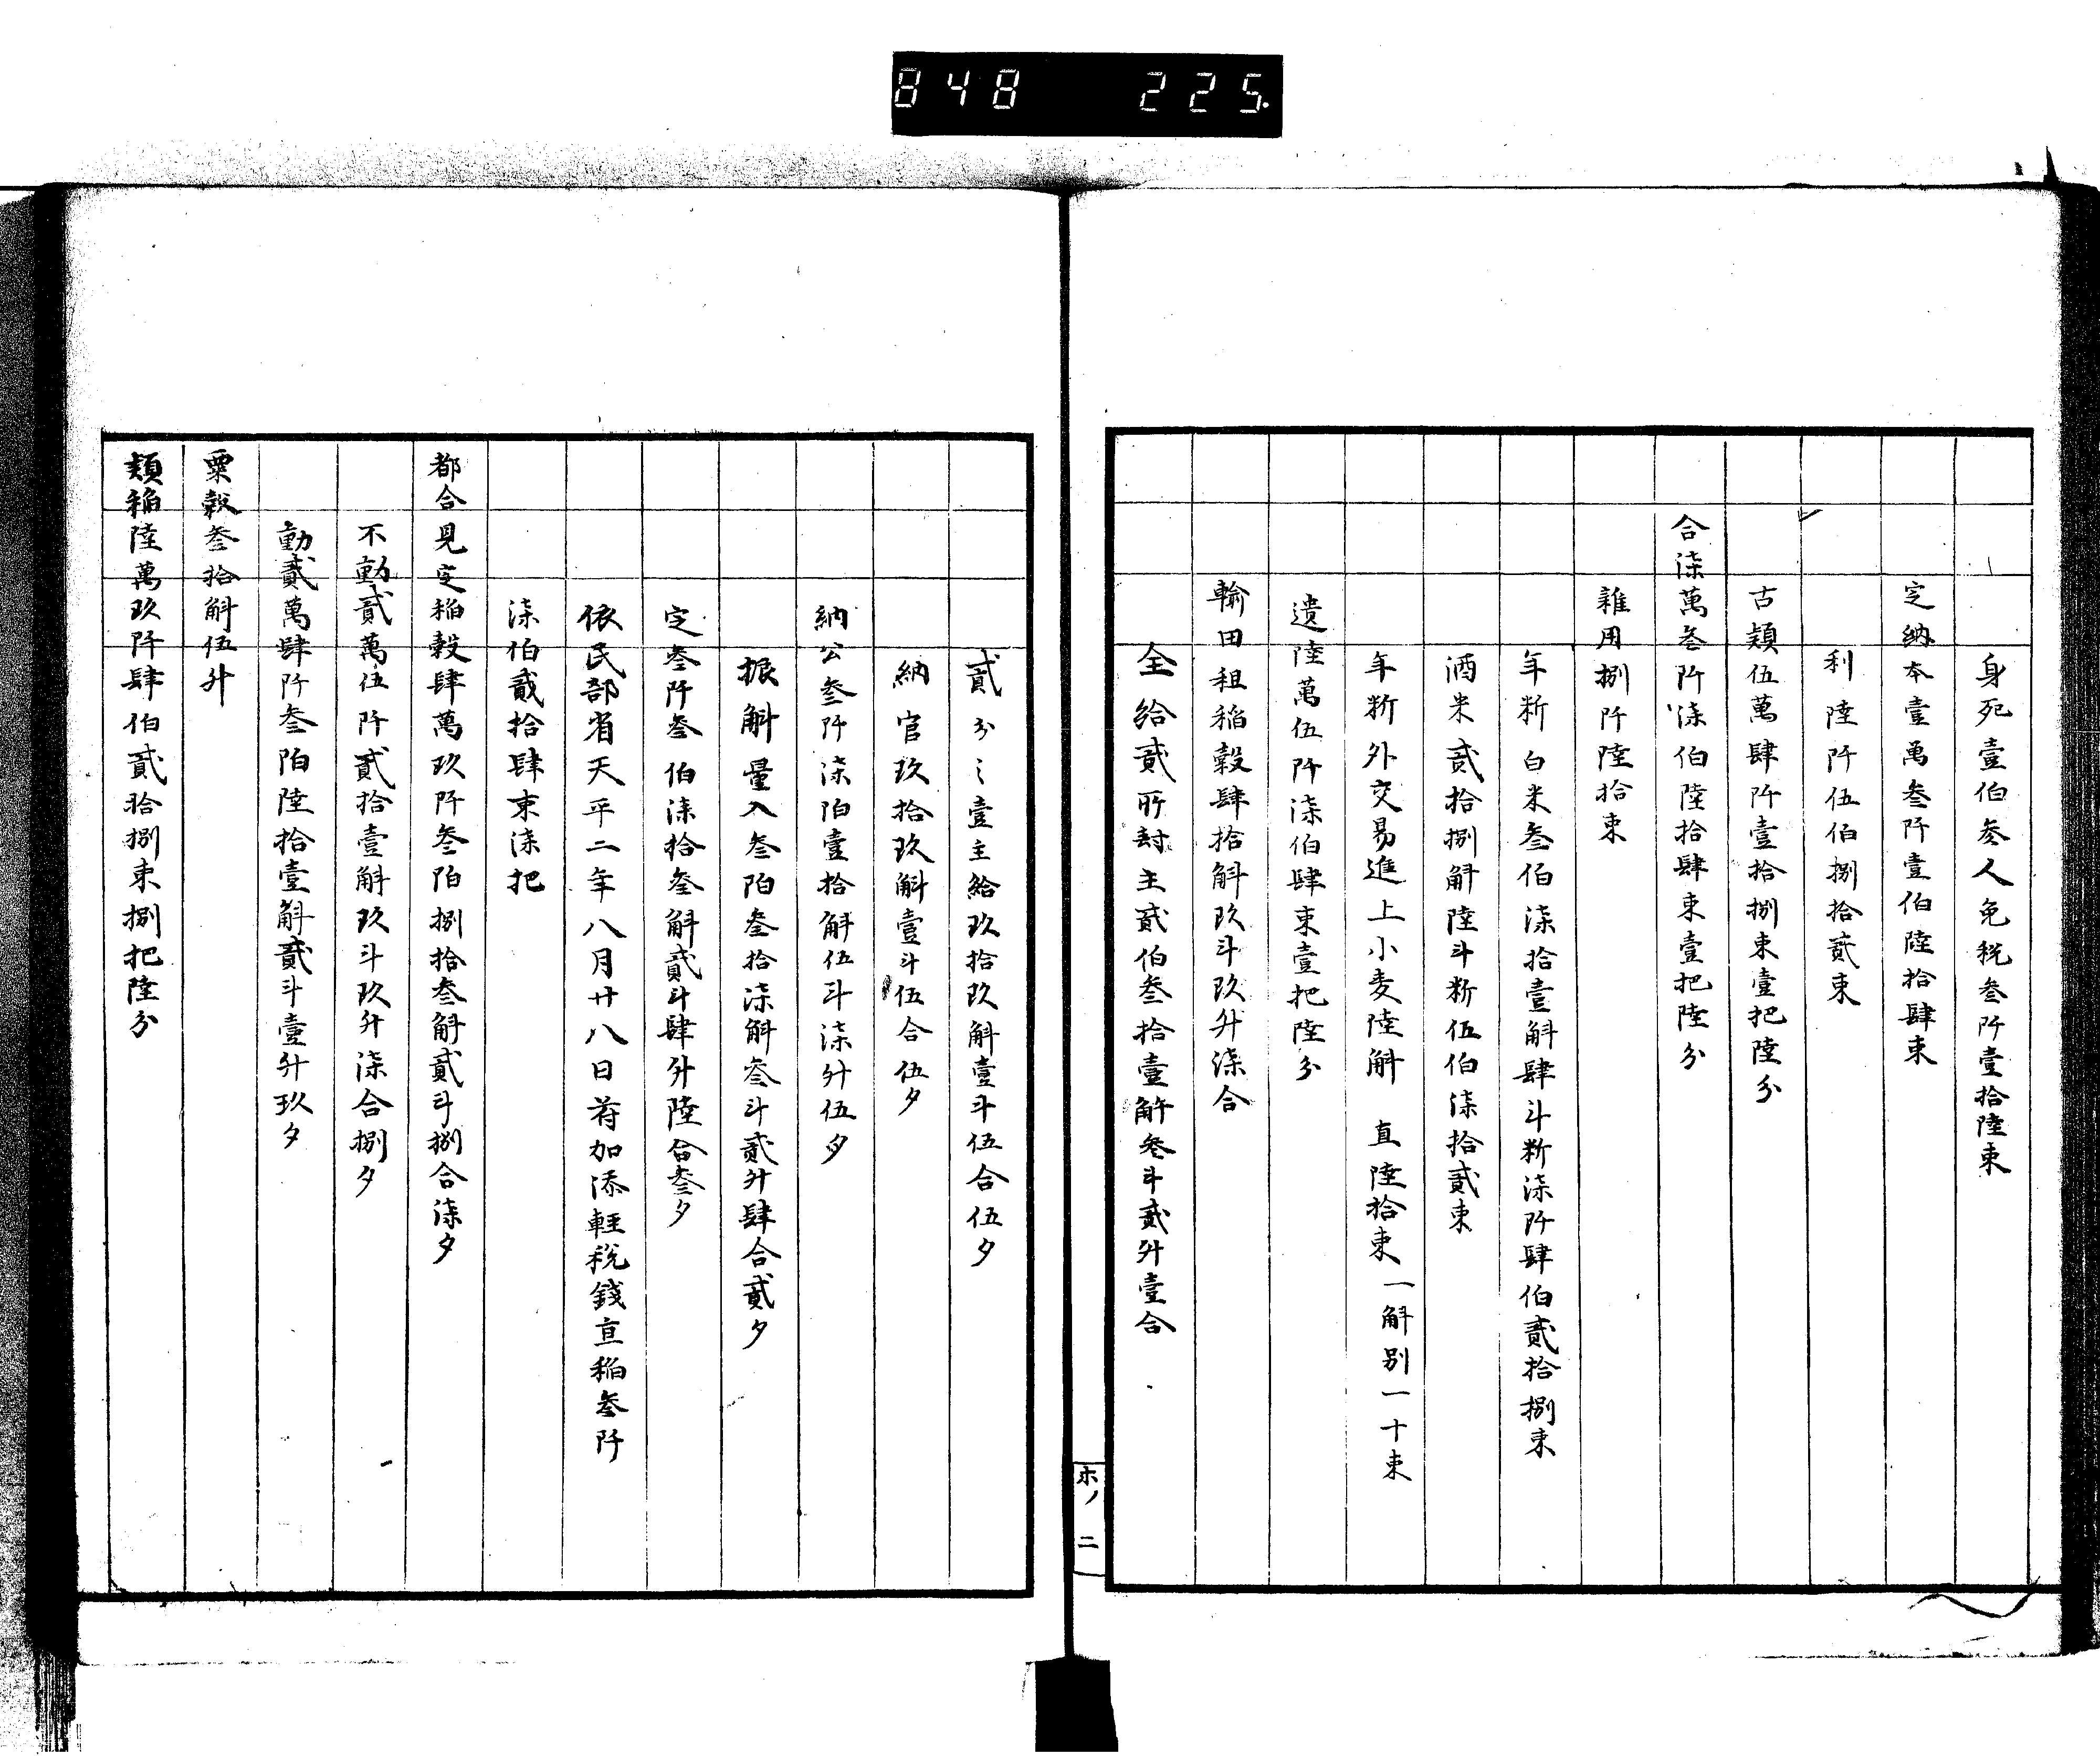 848 225
身死壹伯叄人免税叄阡壹拾陸束
定納本壹萬叄阡壹伯陸拾肆束
利陸阡伍伯捌拾貳束
古穎伍萬肆阡壹拾捌束壹把陸分
合柒萬叄阡柒伯陸拾肆束壹把陸分
雜用捌阡陸拾束
年新白米叄伯柒拾壹斛肆斗新柒阡肆伯貳拾捌束
酒米貳拾捌斛陸斗新伍伯柒拾貳束
年新外交易進上小麦陸斛 直陸拾束 一斛別一十束
遺陸萬伍阡柒伯肆束壹把陸分
輸田租稲穀肆拾斛玖斗玖升柒合
全給貳所封主貳伯叄拾壹斛叄斗貳升壹合
ホノ二
貳分之壹主給玖拾玖斛壹斗伍合伍夕
納官玖拾玖斛壹斗伍合伍夕
納公叄阡柒陌壹拾斛伍斗柒升伍夕
振斛量入叄陌叄拾柒斛叄斗貳升肆合貳夕
定叄阡叄伯柒拾叄斛貳斗肆升陸合叄夕
依民部省天平二年八月廿八日苻加添軽税錢直稲叄阡
柒伯貳拾肆束柒把
都合見定稲穀肆萬玖阡叄陌捌拾叄斛貳斗捌合柒夕
不動貳萬伍阡貳拾壹斛玖斗玖升柒合捌夕
動貳萬肆阡叄陌陸拾壹斛貳斗壹升玖夕
粟穀叄拾斛伍升
穎稲陸萬玖阡肆伯貳拾捌束捌把陸分